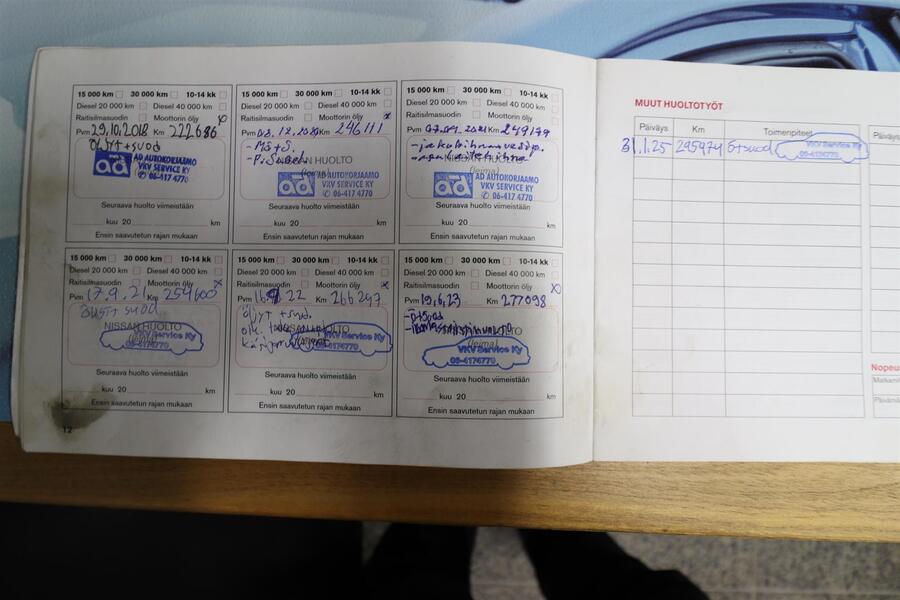 15 000 km 30 000 km 10-14 kk
Diesel 20 000 km Diesel 40 000 km
Raitisilmasuodin Moottorin öljy x
Pvm 29.10.2018 Km 222686
Öljyt+suod
AD AUTOKORJAAMO
ad VKV SERVICE KY
✆ 06-417 4770
Seuraava huolto viimeistään
kuu 20 km
Ensin saavutetun rajan mukaan
15 000 km 30 000 km 10-14 kk
Diesel 20 000 km Diesel 40 000 km
Raitisilmasuodin Moottorin öljy x
Pvm 12. Km 246111
NISSAN HUOLTO
(leima)
AD AUTOKORJAAMO
ad VKV SERVICE KY
✆ 06-417 4770
Seuraava huolto viimeistään
kuu 20 km
Ensin saavutetun rajan mukaan
15 000 km 30 000 km 10-14 kk
Diesel 20 000 km Diesel 40 000 km
Raitisilmasuodin Moottorin öljy
Pvm Km 249179
(leima)
AD AUTOKORJAAMO
ad VKV SERVICE KY
✆ 06-417 4770
Seuraava huolto viimeistään
kuu 20 km
Ensin saavutetun rajan mukaan
15 000 km 30 000 km 10-14 kk
Diesel 20 000 km Diesel 40 000 km
Raitisilmasuodin Moottorin öljy x
Pvm 17.9.21 Km 254600
Öljyt+suod
NISSAN HUOLTO
(leima)
VKV Service Ky
06-4174770
Seuraava huolto viimeistään
kuu 20 km
Ensin saavutetun rajan mukaan
15 000 km 30 000 km 10-14 kk
Diesel 20 000 km Diesel 40 000 km
Raitisilmasuodin Moottorin öljy x
Pvm 16.9.22 Km 266247
öljyt +suod.
VKV Service Ky
06-4174770
Seuraava huolto viimeistään
kuu 20 km
Ensin saavutetun rajan mukaan
15 000 km 30 000 km 10-14 kk
Diesel 20 000 km Diesel 40 000 km
Raitisilmasuodin Moottorin öljy x
Pvm 19.6.23 Km 277098
-Ö+suod
(leima)
VKV Service Ky
06-4174770
Seuraava huolto viimeistään
kuu 20 km
Ensin saavutetun rajan mukaan
12
MUUT HUOLTOTYÖT
Päiväys Km Toimenpiteet
31.1.25 295974 Ö+suod VKV Service Ky
06-4174770
Päiväys
Nopeu
Matkamit
Päivämä